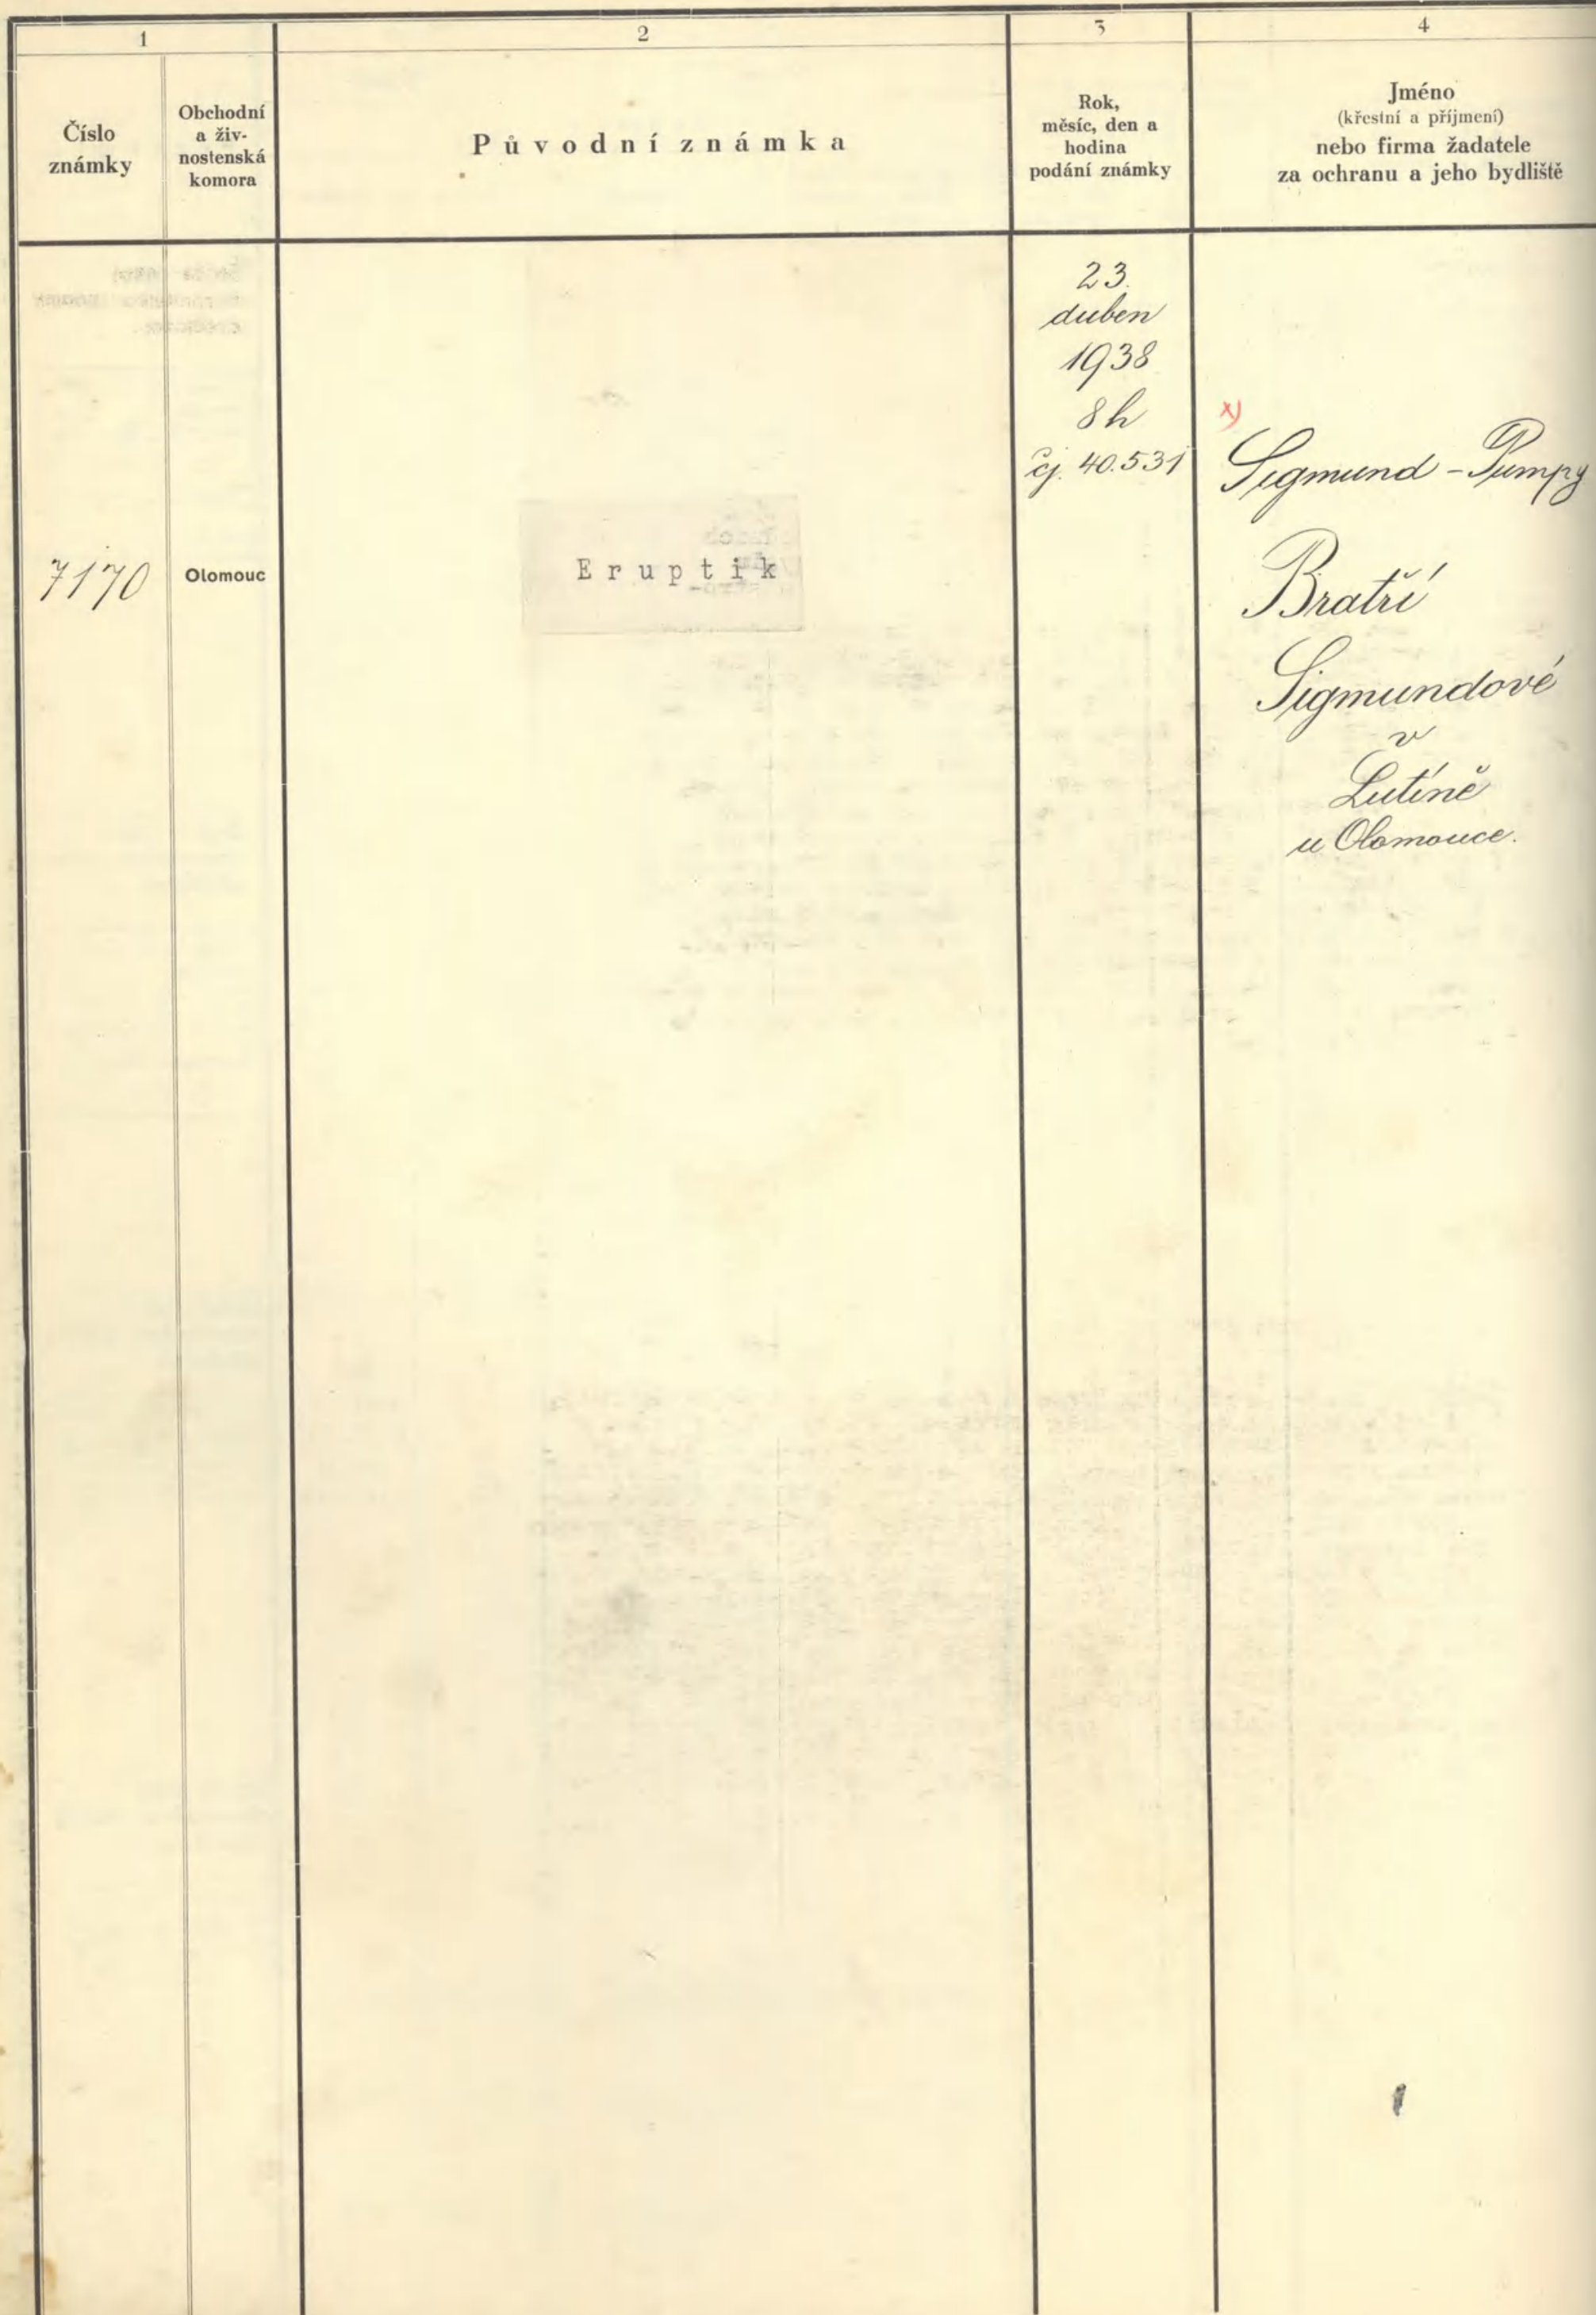 1
2
3
4
Číslo
známky
Obchodní
a živ-
nostenská
komora
Původní známka
Rok,
měsíc, den a
hodina
podání známky
Jméno
(křestní a příjmení)
nebo firma žadatele
za ochranu a jeho bydliště
7170
Olomouc
Eruptik
23.
duben
1938
8h
čj. 40.531
x)
Sigmund - Pumpy
Bratří
Sigmundové
v
Lutíně
u Olomouce.